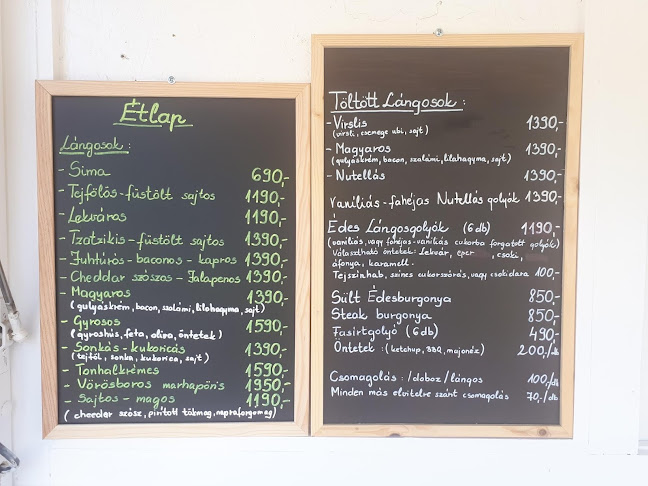 Étlap
Lángosok :
- Sima 690,-
- Tejfölös-füstölt sajtos 1190,-
- Lekváros 1190,-
- Tzatzikis-füstölt sajtos 1390,-
- Juhtúrós-baconos-kapros 1390,-
- Cheddar szószos-Jalapenos 1390,-
- Magyaros 1390,-
(gulyáskrém, bacon, szalámi, lilahagyma, sajt)
- Gyrosos 1590,-
(gyroshús, feta, oliva, öntetek)
- Sonkás-kukoricás 1390,-
(tejföl, sonka, kukorica, sajt)
- Tonhalkrémes 1590,-
- Vörösboros marhapöris 1950,-
- Sajtos-magos 1190,-
(chedar szósz, pirított tökmag, napraforgómag)
Töltött Lángosok :
- Virslis 1390,-
(virsli, csemege ubi, sajt)
- Magyaros 1390,-
(gulyáskrém, bacon, szalámi, lilahagyma, sajt)
- Nutellás 1390,-
Vaníliás-fahéjas Nutellás golyók 1390,-
Édes Lángosgolyók (6 db) 1190,-
(vaníliás, vagy fahéjas-vaníliás cukorba forgatott golyók)
Választható öntetek: Lekvár, eper , csoki,
áfonya, karamell.
Tejszínhab, színes cukorszórás, vagy csokidara 100,-
Sült Édesburgonya 850,-
Steak burgonya 850,-
Fasirtgolyó (6 db) 490,-
Öntetek : (ketchup, BBQ, majonéz) 200,/db
Csomagolás : /doboz/lángos 100,/db
Minden más elvitelre szánt csomagolás 70,-/db